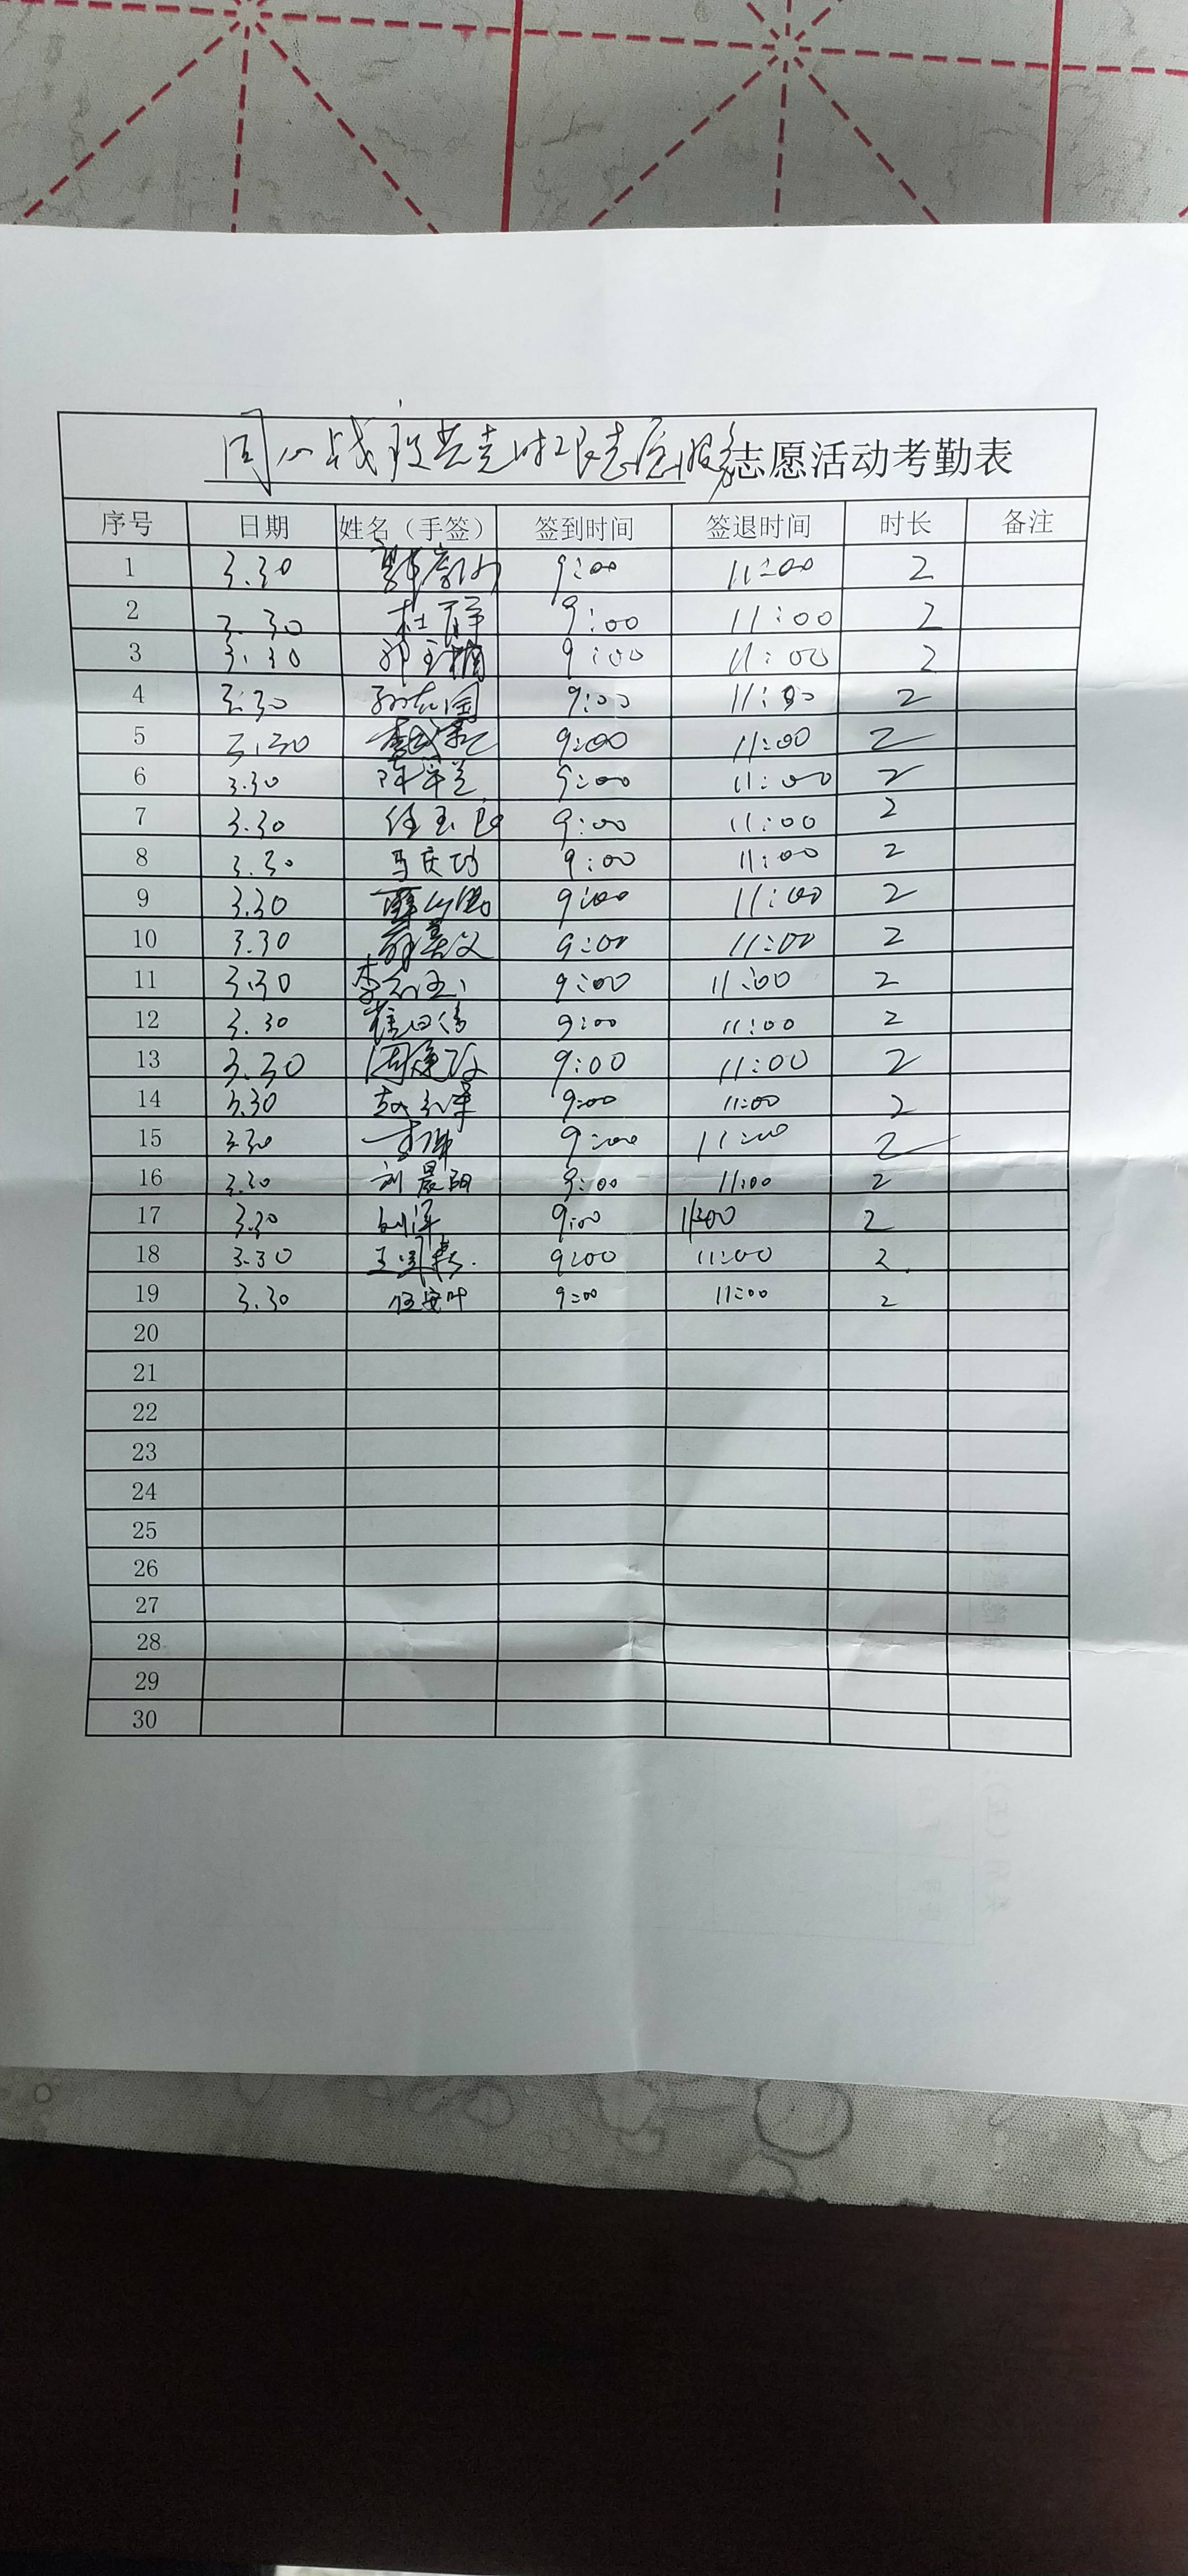 同心战疫共克时艰志愿服务志愿活动考勤表
序号 日期 姓名（手签） 签到时间 签退时间 时长 备注
1 3.30 9:00 11:00 2
2 3.30 杜群 9:00 11:00 2
3 3.30 郭玉楠 9:00 11:00 2
4 3.30 9:00 11:00 2
5 3.30 9:00 11:00 2
6 3.30 陈军兰 9:00 11:00 2
7 3.30 任玉良 9:00 11:00 2
8 3.30 马庆功 9:00 11:00 2
9 3.30 9:00 11:00 2
10 3.30 9:00 11:00 2
11 3.30 9:00 11:00 2
12 3.30 9:00 11:00 2
13 3.30 9:00 11:00 2
14 3.30 9:00 11:00 2
15 3.30 9:00 11:00 2
16 3.30 刘晨阳 9:00 11:00 2
17 3.30 9:00 11:00 2
18 3.30 9:00 11:00 2
19 3.30 任安叶 9:00 11:00 2
20
21
22
23
24
25
26
27
28
29
30